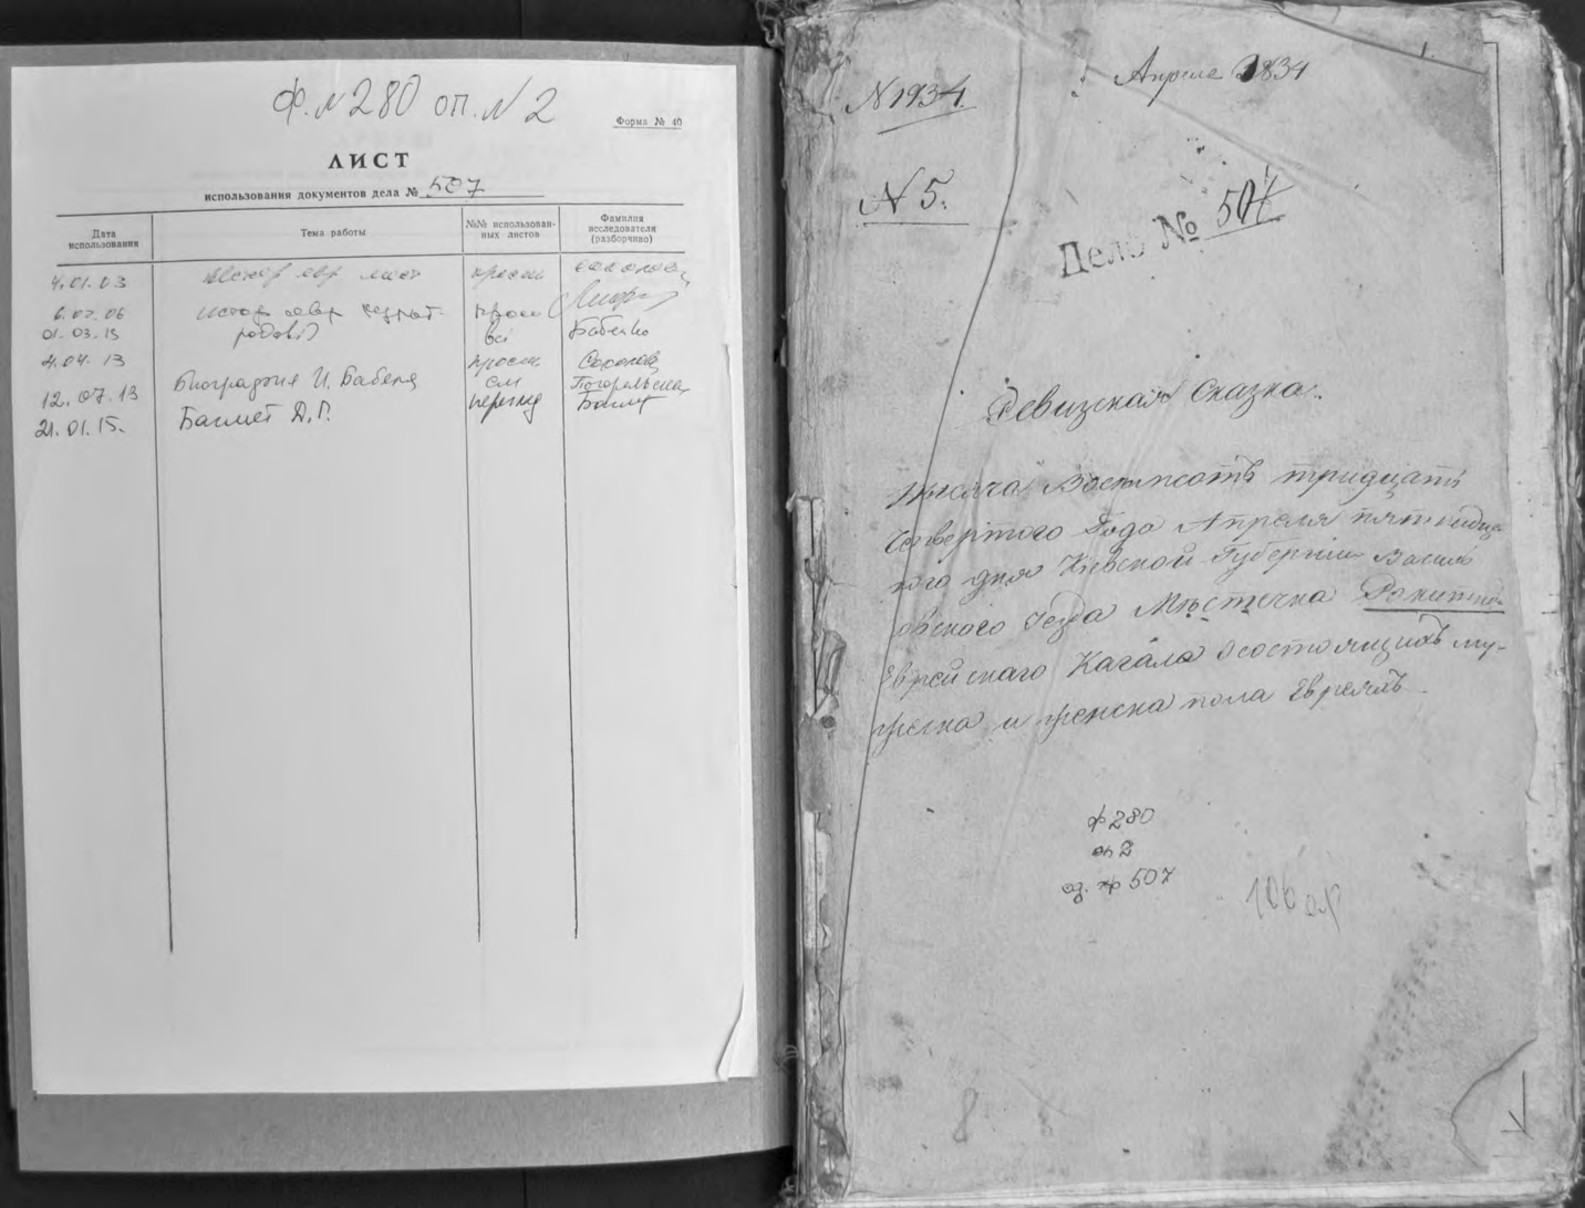 Ф. № 280 оп. № 2
Форма № 40
ЛИСТ
использования документов дела № 507
Дата использования
Тема работы
№№ использован-ных листов
Фамилия исследователя (разборчиво)
4.01.03
6.07.06
01.03.13 всі Бабенко
4.04.13
12.07.13 Биография И. Бабеля Погорельская
21.01.15. Басмет Д.Г. перегляд
N 1934.
Апреля 1834
N 5.
Дело № 507
Ревизская Сказка.
тысяча Восемьсотъ тридцать
Четвертого Года Апреля пятнадца
того дня Кіевской Губерніи Василь
ковского уезда Мѣстечка Ракитна
Еврейскаго Кагала о состоящихъ му-
жеска и женска пола Евреяхъ.
ф 280
оп 2
од. зб 507
106 арк
8